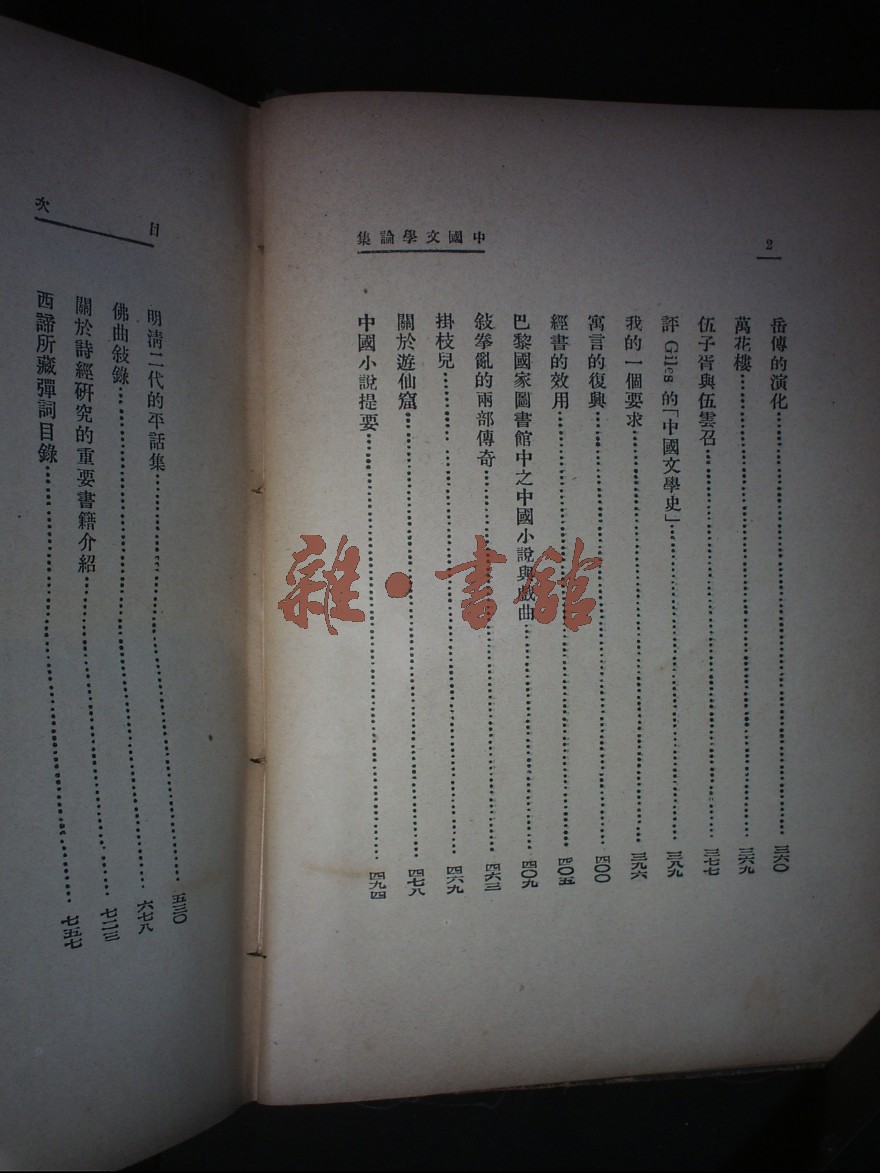 2
中國文學論集
岳傳的演化……三六〇
萬花樓……三六九
伍子胥與伍雲召……三七七
評 Giles 的「中國文學史」……三八九
我的一個要求……三九六
寓言的復興……四〇〇
經書的效用……四〇五
巴黎國家圖書館中之中國小說與戲曲……四〇九
敍拳亂的兩部傳奇……四六三
掛枝兒……四六九
關於遊仙窟……四七八
中國小說提要……四九四
目次
明清二代的平話集……五三〇
佛曲敍錄……六七八
關於詩經研究的重要書籍介紹……七二三
西諦所藏彈詞目錄……七五七
雜·書館